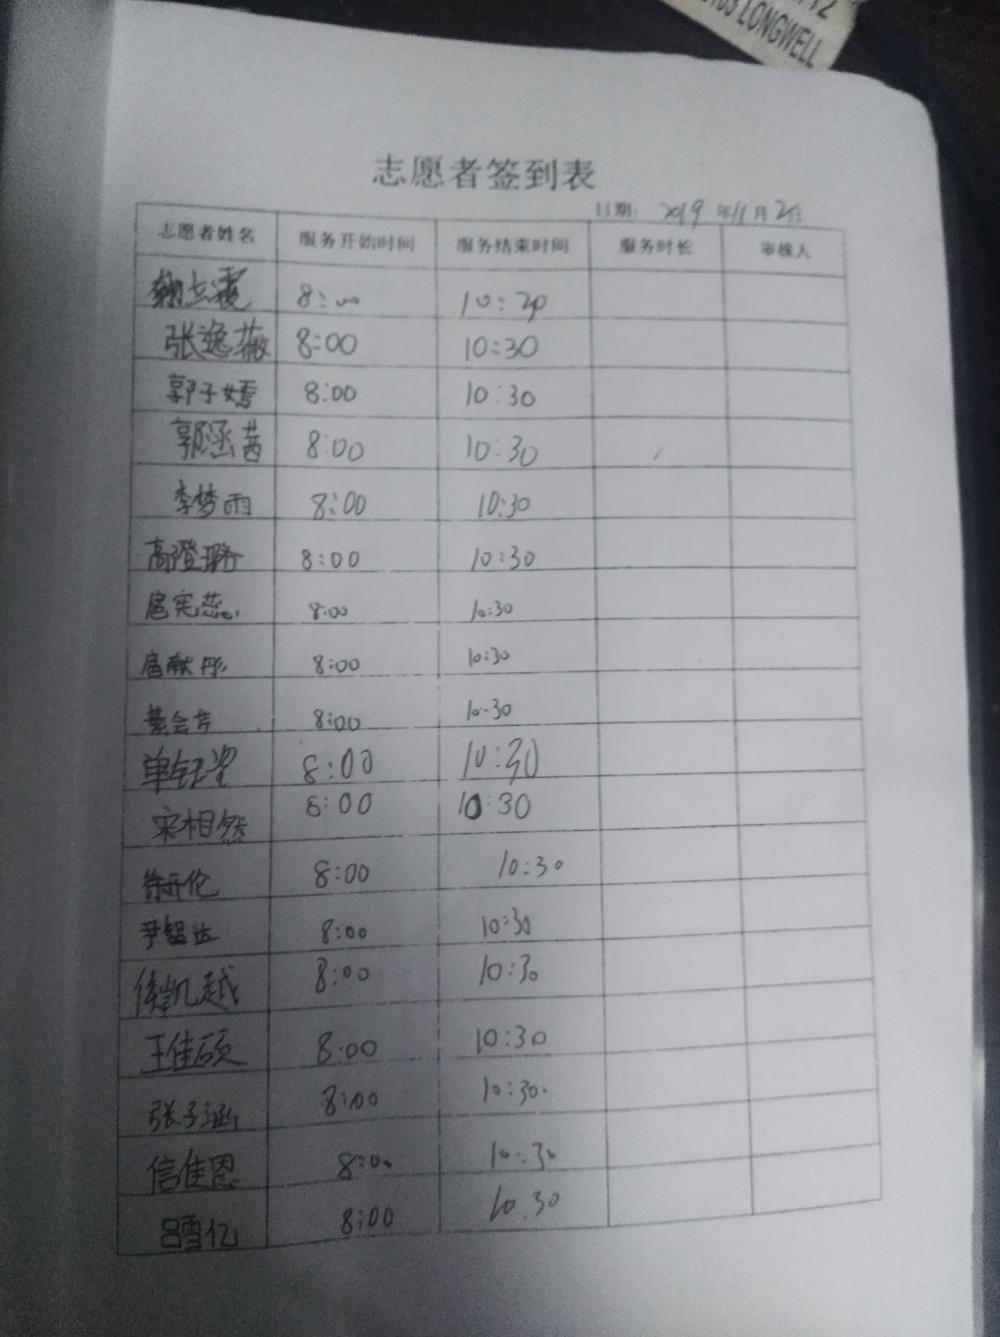 LONGWELL
志愿者签到表
日期: 2019 年11月2日
志愿者姓名 服务开始时间 服务结束时间 服务时长 审核人
8:00 10:30
张逸薇 8:00 10:30
郭子嫣 8:00 10:30
郭涵茜 8:00 10:30
李梦雨 8:00 10:30
高澄璐 8:00 10:30
8:00 10:30
8:00 10:30
8:00 10:30
8:00 10:30
宋相然 8:00 10:30
8:00 10:30
8:00 10:30
侯凯越 8:00 10:30
王佳硕 8:00 10:30
张子涵 8:00 10:30
信佳恩 8:00 10:30
吕雪亿 8:00 10:30